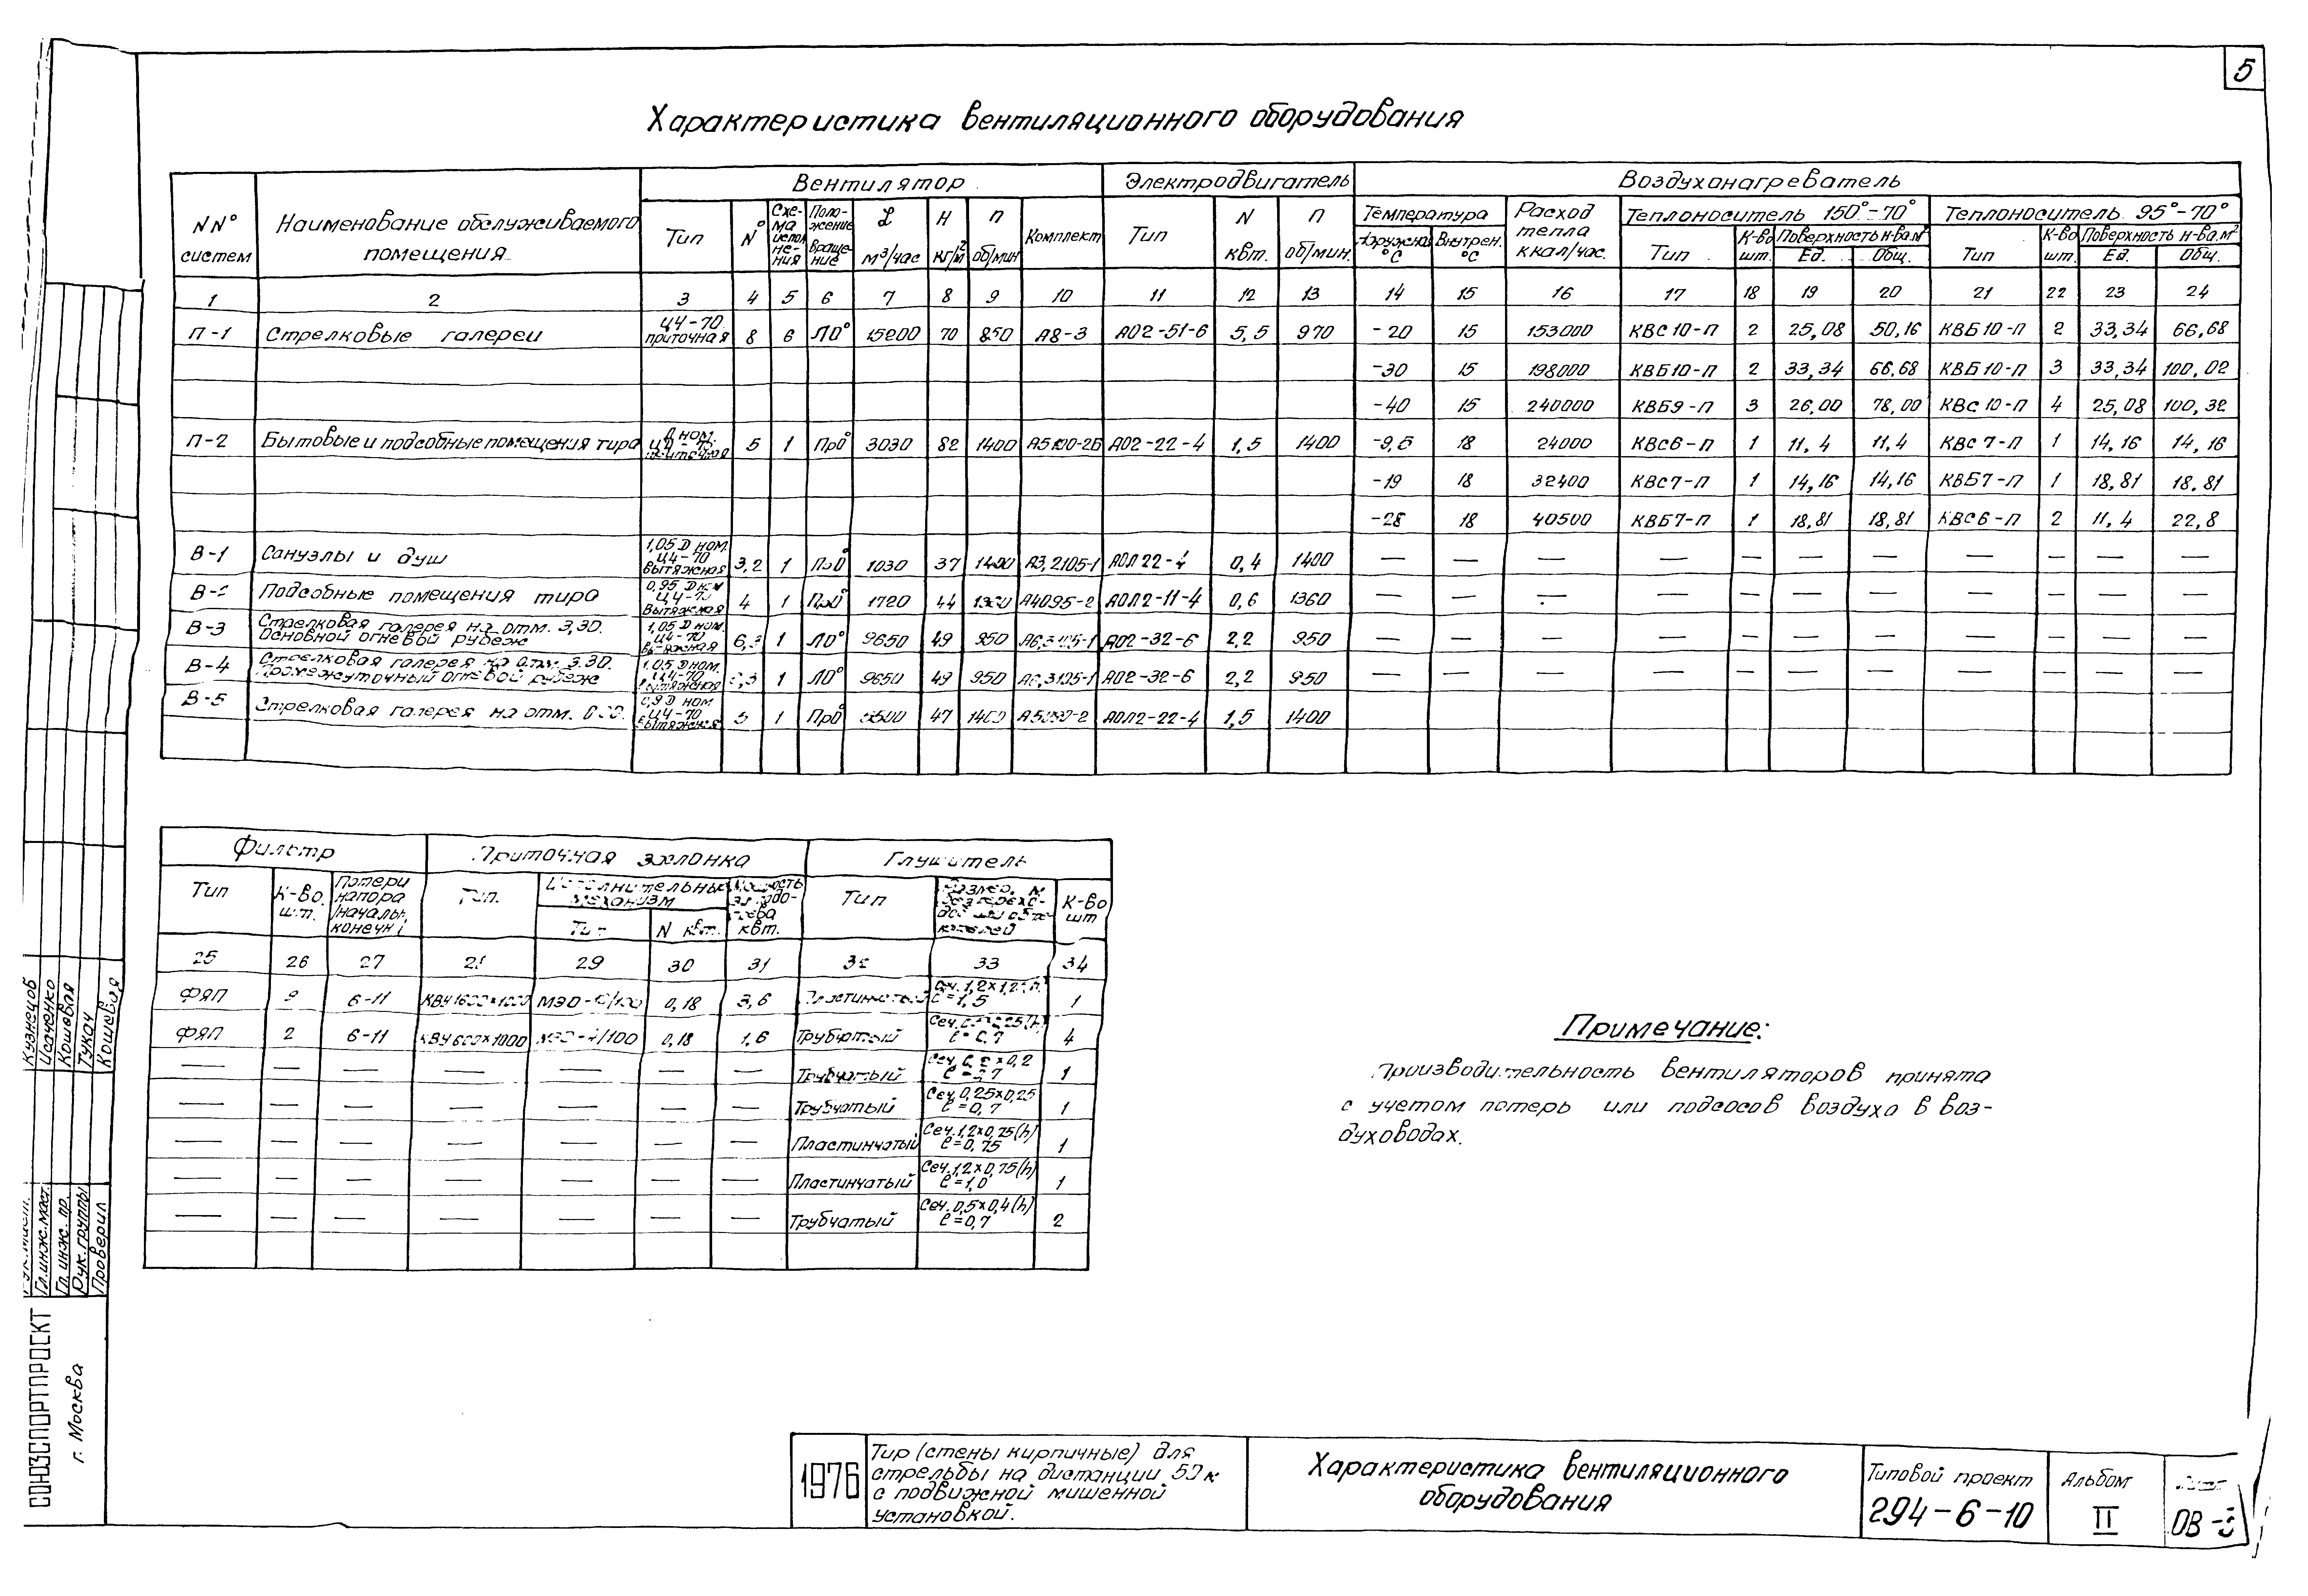 5
Характеристика вентиляционного оборудования
NN° систем
Наименование обслуживаемого помещения
Вентилятор
Электродвигатель
Воздухонагреватель
Тип
N°
Схема исполнения
Положение вращение
L м³/час
H кг/м²
n об/мин
Комплект
Тип
N квт.
n об/мин.
Температура
Наружная °С
Внутрен. °С
Расход тепла ккал/час.
Теплоноситель 150°-70°
Тип
К-во шт.
Поверхность н-ва м²
Ед.
Общ.
Теплоноситель 95°-70°
Тип
К-во шт.
Поверхность н-ва, м²
Ед.
Общ.
1 2 3 4 5 6 7 8 9 10 11 12 13 14 15 16 17 18 19 20 21 22 23 24
П-1 Стрелковые галереи Ц4-70 приточная 8 6 Л0° 15200 70 850 А8-3 АО2-51-6 5,5 970 -20 15 153000 КВС10-П 2 25,08 50,16 КВБ10-П 2 33,34 66,68
-30 15 198000 КВБ10-П 2 33,34 66,68 КВБ10-П 3 33,34 100,02
-40 15 240000 КВБ9-П 3 26,00 78,00 КВС10-П 4 25,08 100,32
П-2 Бытовые и подсобные помещения тира Д ном. Ц4-70 приточная 5 1 Пр0° 3030 82 1400 А5100-2Б АО2-22-4 1,5 1400 -9,5 18 24000 КВС6-П 1 11,4 11,4 КВС7-П 1 14,16 14,16
-19 18 32400 КВС7-П 1 14,16 14,16 КВБ7-П 1 18,81 18,81
-28 18 40500 КВБ7-П 1 18,81 18,81 КВС6-П 2 11,4 22,8
В-1 Санузлы и душ 1,05 Д ном. Ц4-70 вытяжная 3,2 1 Пр0° 1030 37 1400 А3,2105-1 АОЛ22-4 0,4 1400 — — — — — — — — — — —
Подсобные помещения тира 0,95 Д ном Ц4-70 вытяжная 4 1 Пр0° 1720 44 А4095-2 АОЛ2-11-4 0,6 1360 — — — — — — — — — — —
В-3 Стрелковая галерея на отм. 3,30. Основной огневой рубеж 1,05 Д ном. Ц4-70 вытяжная 6,3 1 Л0° 9650 49 950 АО2-32-6 2,2 950 — — — — — — — — — — —
В-4 Стрелковая галерея на отм. 3.30. Промежуточный огневой рубеж 1,05 Д ном. Ц4-70 вытяжная 1 Л0° 9650 49 950 АО2-32-6 2,2 950 — — — — — — — — — — —
В-5 Стрелковая галерея на отм. 0,9 Д ном Ц4-70 вытяжная 5 1 Пр0° 47 1400 АОЛ2-22-4 1,5 1400
Фильтр
Приточная заслонка
Глушитель
Тип
К-во. шт.
Потери напора /начальн, конечн/
Тип.
Исполнительный механизм
Тип
N квт.
Мощность квт.
Тип
К-во шт
25 26 27 29 30 31 33 34
ФЯП 6-11 КВУ1600×1000 0,18 3,6 Пластинчатый Сеч. 1,2×1,2(h) ℓ=1,5 1
ФЯП 2 6-11 КВУ600×1000 0,18 1,6 Трубчатый 4
— — — — — — — Трубчатый 1
— — — — — — — Трубчатый Сеч. 0,25×0,25 ℓ=0,7 1
— — — — — — — Пластинчатый Сеч. 1,2×0,75(h) ℓ=0,75 1
— — — — — — — Пластинчатый Сеч. 1,2×0,75(h) ℓ=1,0 1
— — — — — — — Трубчатый Сеч. 0,5×0,4(h) ℓ=0,7 2
Примечание:
Производительность вентиляторов принята
с учетом потерь или подсосов воздуха в воз-
духоводах.
Кузнецов
Исаченко
Кошевая
Тукач
Кошевая
Гл.инж.маст.
Гл. инж. пр.
Рук.группы
Проверил
СОЮЗСПОРТПРОЕКТ
г. Москва
1976
Тир (стены кирпичные) для
стрельбы на дистанции 50 м
с подвижной мишенной
установкой.
Характеристика вентиляционного
оборудования
Типовой проект
294-6-10
Альбом
II
Лист